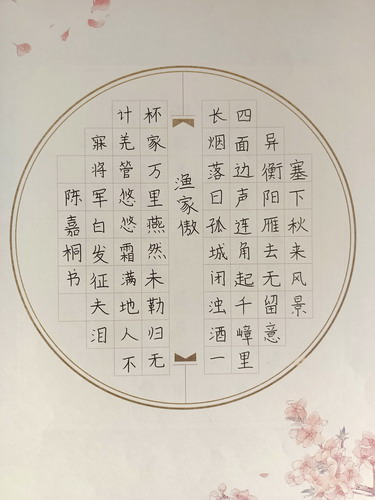 塞下秋来风景
异衡阳雁去无留意
四面边声连角起千嶂里
长烟落日孤城闭浊酒一
渔家傲
杯家万里燕然未勒归无
计羌管悠悠霜满地人不
寐将军白发征夫泪
陈嘉桐书